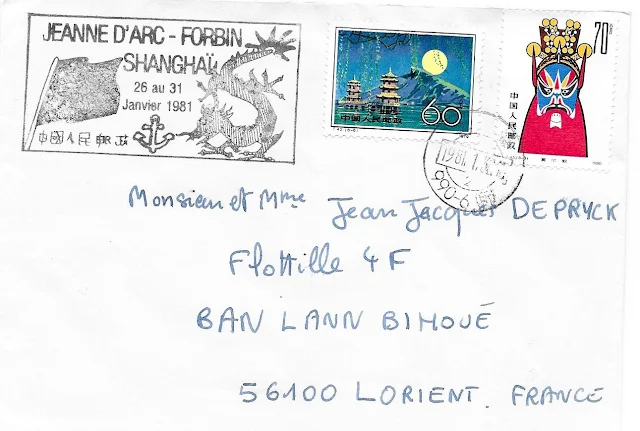 JEANNE D'ARC - FORBIN
SHANGHAÏ
26 au 31
Janvier 1981
中國人民郵政
60
中国人民邮政
70分
中国人民邮政
Monsieur et Mme Jean Jacques DEPRYCK
Flottille 4F
BAN LANN BIHOUÉ
56100 LORIENT. FRANCE